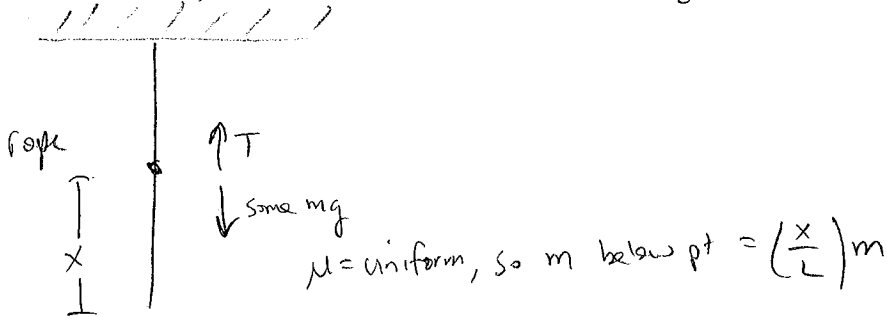 rope
↑ T
↓ some mg
X
μ = uniform, so m below pt = (x/L) m